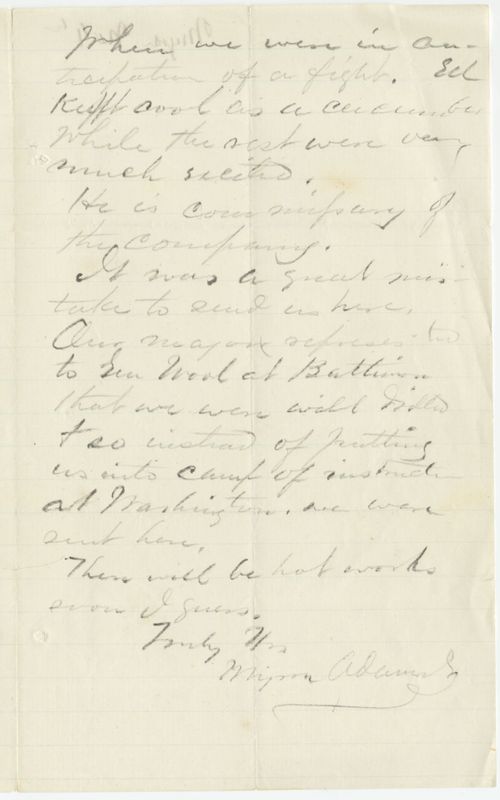 When we were in an-
ticipation of a fight. Ed
Kept cool as a cucumber
while the rest were very
much excited.
He is commissary of
the company.
It was a great mis-
take to send us here.
Our major represented
to Gen Wool at Baltimore
that we were well drilled
& so instead of putting
us into camp of instruction
at Washington. we were
sent here.
There will be hot works
soon I guess.
Truly Yrs
Myron Adams Jr